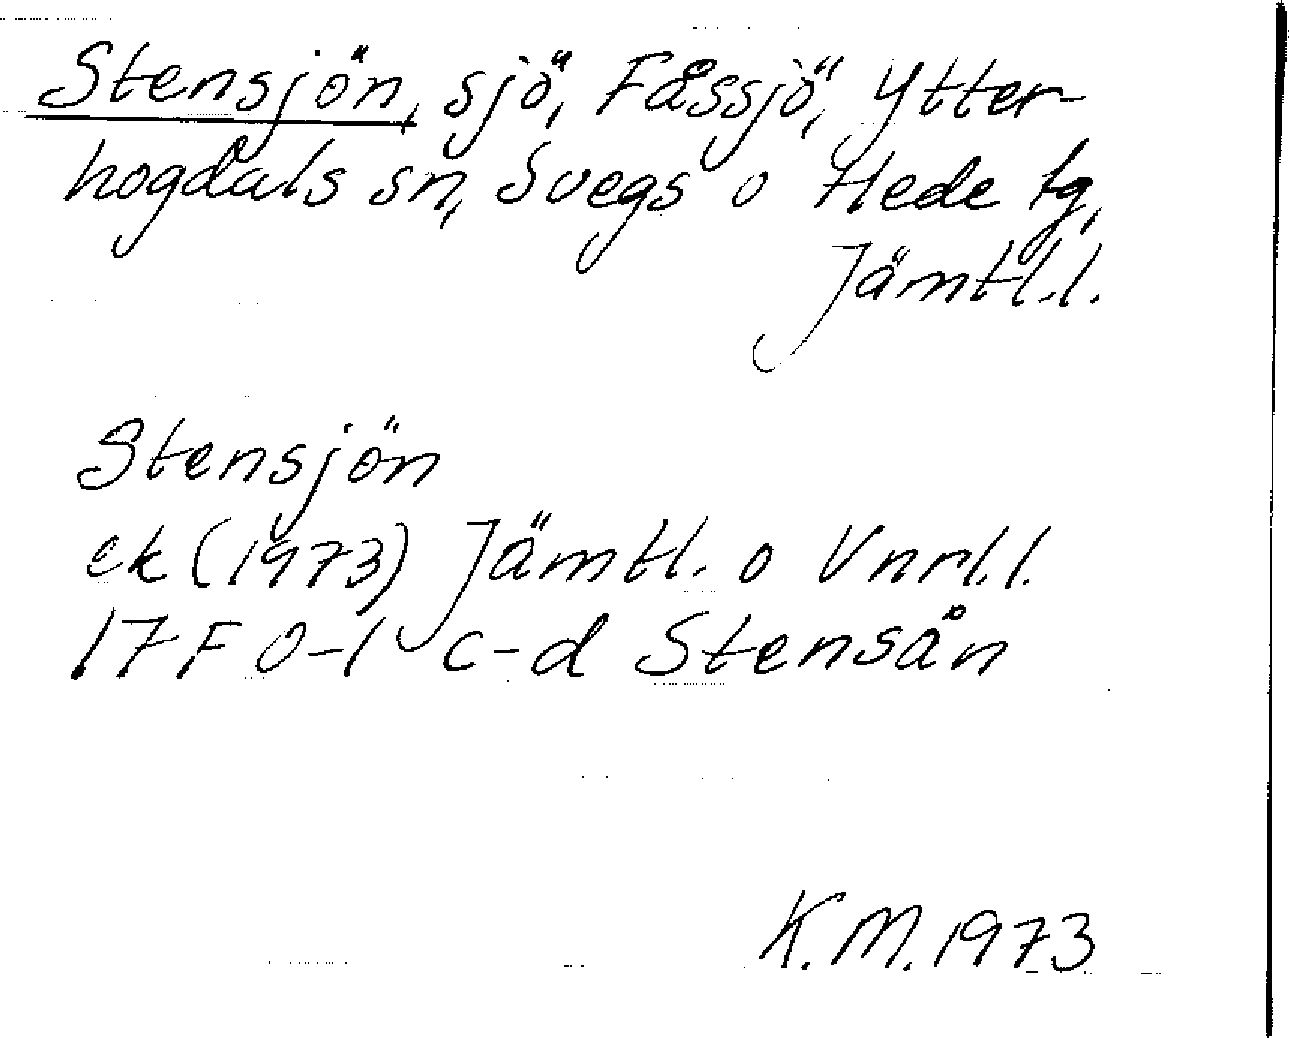 Stensjön, sjö, Fåssjö, Ytter-
hogdals sn, Svegs o Hede tg,
Jämtl.l.
Stensjön
ek (1973) Jämtl. o Vnrl.l.
17F 0-1 c-d Stensån
K.M. 1973